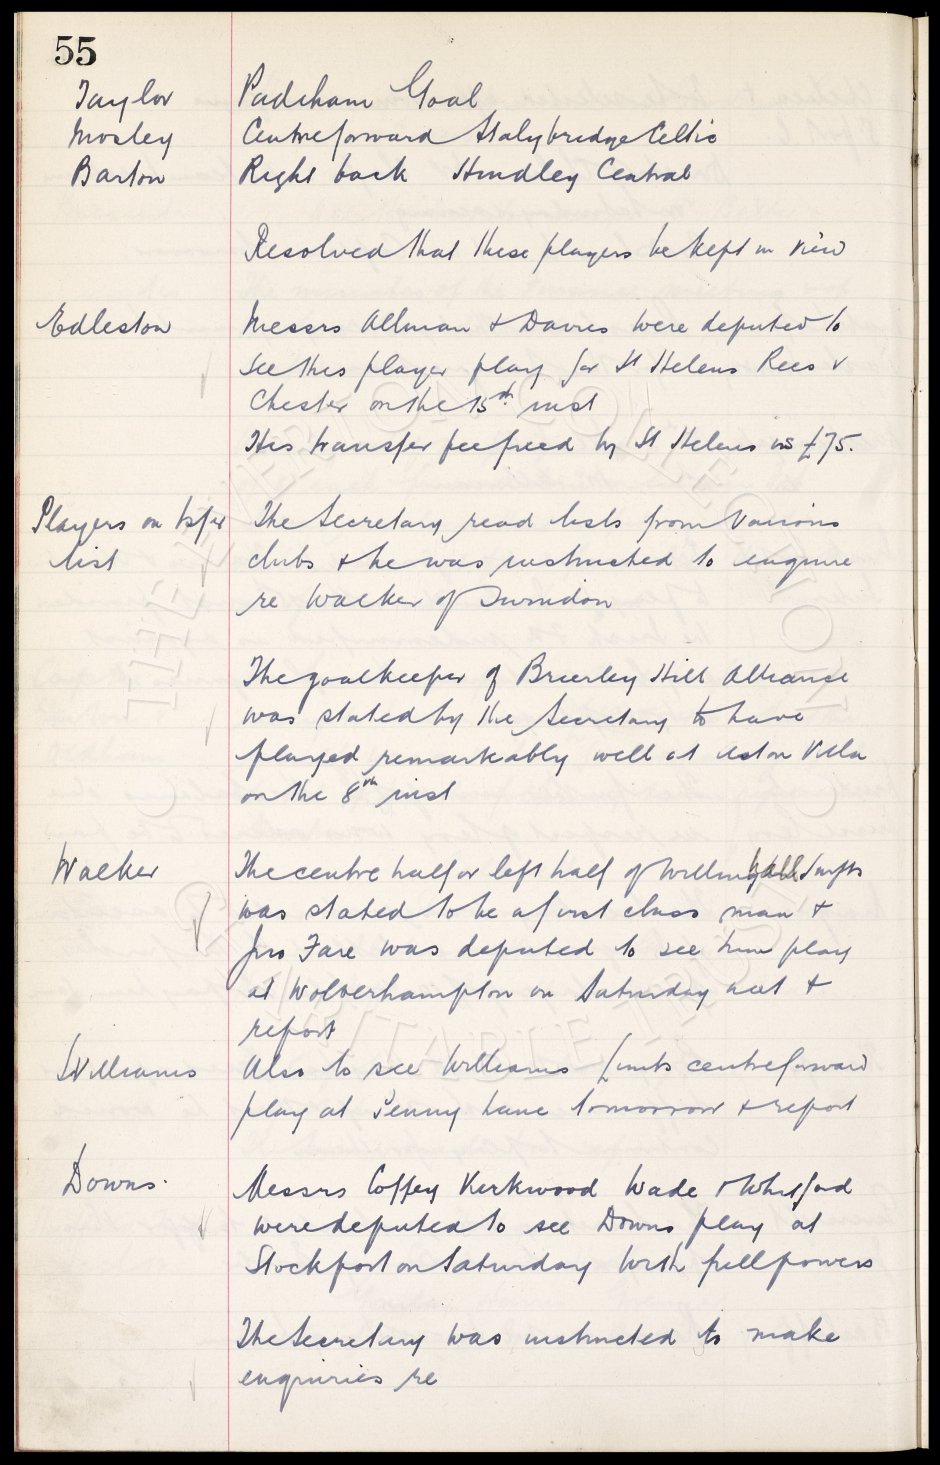 55
Taylor Padiham Goal
Mosley Centreforward Stalybridge Celtic
Barton Right back Hindley Central
Resolved that these players be kept in view
Edleston Messrs Allman & Davies were deputed to
see this player play for St Helens Recs v
Chester on the 15th inst
His transfer fee fixed by St Helens is £75.
Players on tsfer The Secretary read lists from various
list clubs & he was instructed to enquire
re Walker of Swindon
The goalkeeper of Brierley Hill Alliance
was stated by the Secretary to have
played remarkably well at Aston Villa
on the 8th inst
Walker The centre half or left half of Willinghall Swifts
was stated to be a first class man &
Jno Fare was deputed to see him play
at Wolverhampton on Saturday next &
report
Williams Also to see Williams centreforward
play at Penny Lane tomorrow & report
Downs. Messrs Coffey Kirkwood Wade & Whitford
were deputed to see Downs play at
Stockport on Saturday with full powers
The Secretary was instructed to make
enquiries re
THE EVERTON COLLECTION
CHARITABLE TRUST